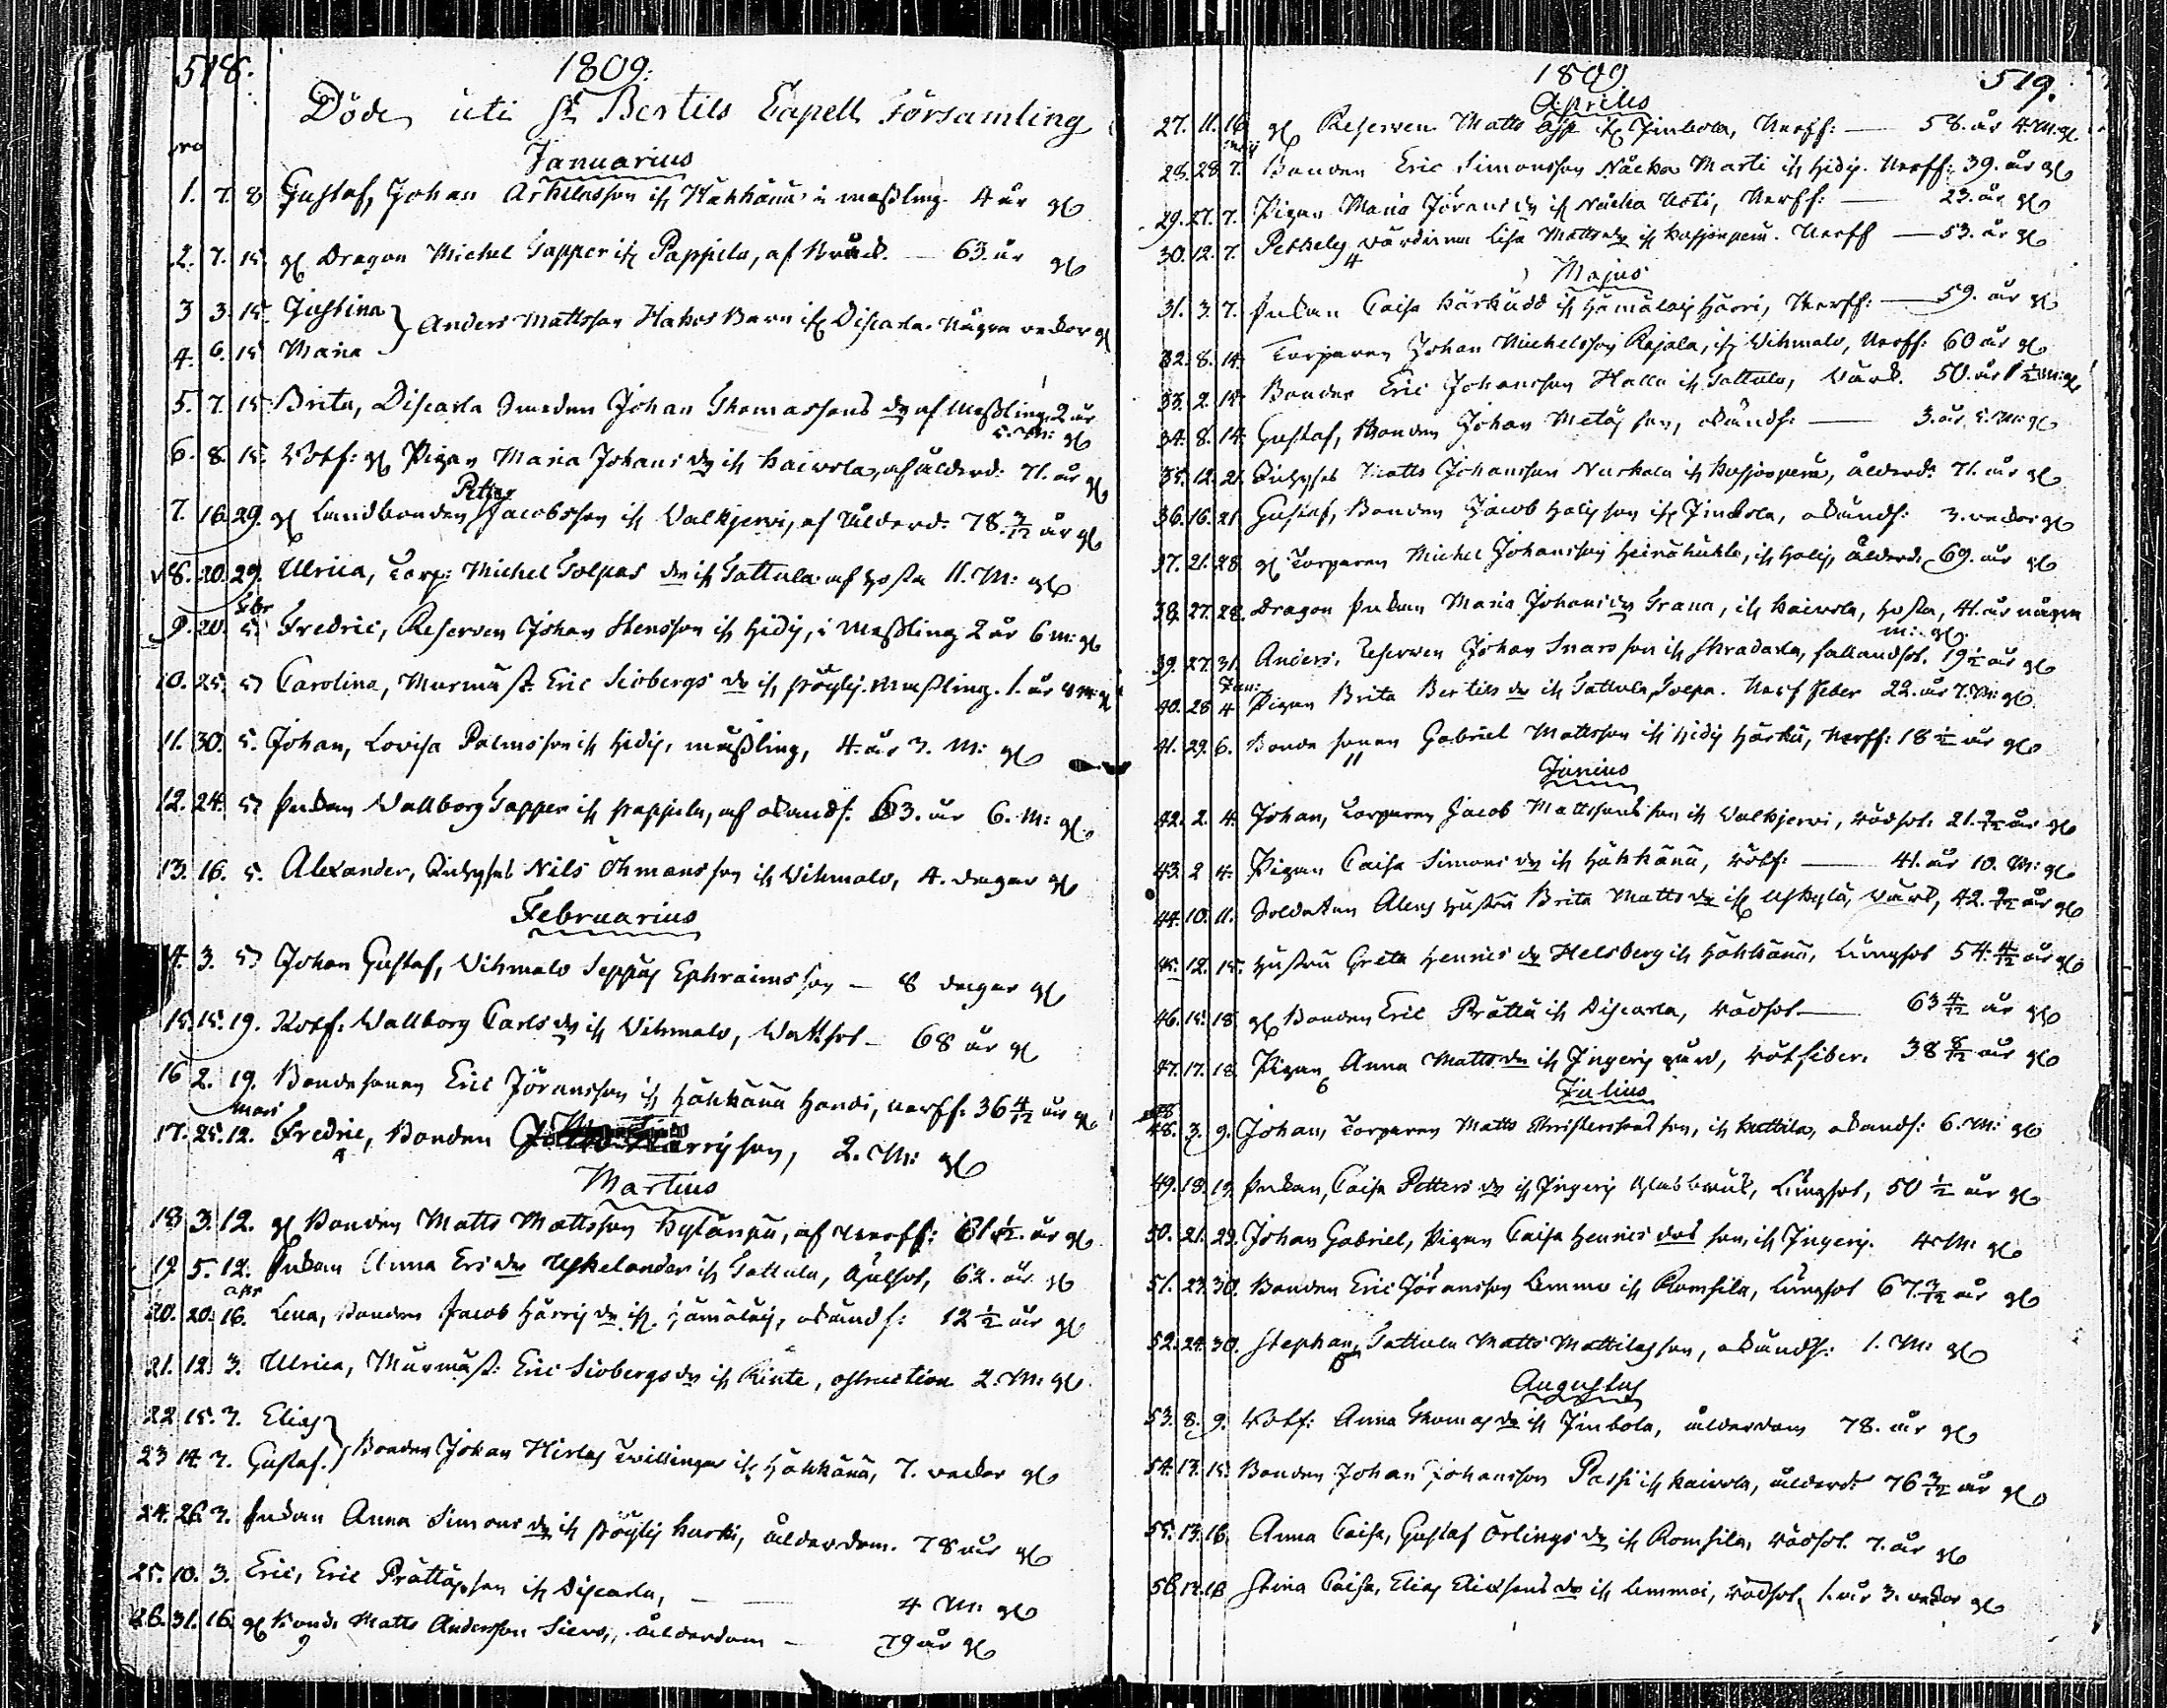 518.
1809.
Döde uti St Bertils Capell Församling
nro
Januarius
1. 7. 8 Gustaf, Johan Achillesson ifr Häkkänä i mässling. 4 år
2. 7. 15. Dragon Michel Tapper ifr Pappila, af 63. år
3 3. 15. Justina
4. 6. 15 Maria
Anders Mattsson Hakos Barn ifr Discarla. några veckor
5. 7. 15. Brita, Discarla Smeden Johan Thomassons dr af Mässling. 2 år
5. M:
6. 8. 15. Rotf: Pigan Maria Johans dr ifr Kaivola, af ålderd: 71. år
Petter
7. 16. 29. Landbonden Jacobsson ifr Valkjervi, af Ålderd: 78 3/12 år
8. 20. 29. Ulrica, Torp: Michel Tolpas dr ifr Tattula af hosta 11. M:
Febr
9. 20. 5. Fredric, Reserven Johan Stensson ifr Hidis, i Mässling 2 år 6 m:
10. 25. 5 Carolina, Murmäst. Eric Siobergs dr ifr Pöytis. Mässling. 1. år
11. 30. 5. Johan, Lovisa Palmsson ifr Hidis, mässling, 4. år 3. M:
12. 24. 5 Enkan Wallborg Tapper ifr Pappila, af okändt. 63. år 6. M:
13. 16. 5. Alexander, Nils Öhmans son ifr Vihmalo, 4. dagar
Februarius
14. 3. 5 Johan Gustaf, Vihmalo Seppäs Ephraims son — 8 dagar
15. 15. 19. Rotf: Wallborg Carls dr ifr Vihmalo, Wattsot — 68 år
16 2. 19. Bondesonen Eric Jöransson ifr Häkkänä Handi, nerff: 36 4/12 år
Mars
17. 25. 12. Fredric, Bonden Harris son, 2. M:
4
Martius
18 3. 12. Bonden Matts Mattsson Kylänpä, af Nerff: 61 1/2. år
19 5. 12. Enkan Anna Ers dr Uskelander ifr Tattula, 62. år
apr
20. 20. 16. Lena, Bonden Jacob Härris dr ifr Hämäläis, okändt: 12 1/2 år
21. 12. 3. Ulrica, Murmäst: Eric Siobergs dr ifr Rinte, obstruction 2. M:
22 15. 3. Elias
23 14 3. Gustaf.
Bonden Johan Hirlas Twillingar ifr Häkkänä, 7. veckor
24. 26. 3. Enkan Anna Simons dr ifr Pöytis Kurki, ålderdom. 78 år
25. 10. 3. Eric, Eric Prättäs son ifr Discarla, — — 4 M:
26. 31. 16. Bond. Matts Andersson Siervo, ålderdom — 79 år
9
1809
519.
Aprilis
27. 11. 16 Reserven Matts Asp ifr Jimbola, Nerff: — 58. år 4. M.
maij
28. 28 7. Bonden Eric Simonsson Näckä Marti ifr Hidis. Nerff: 39. år
29. 27. 7. Pigan Maria Jörans dr ifr Näckä Arti, Nerff: — 23. år
30. 12. 7. Pekkeles Värdinna Lisa Matts dr ifr Kospenperä. Nerff — 53. år
4
Majus
31. 3. 7. Enkan Caisa Kärkudd ifr Hämäläis Härri, Nerff: — 59. år
32. 8. 14. Torparen Johan Michelsson Rajala, ifr Vihmalo, Nerff: 60 år
33. 2. 14. Bonden Eric Johansson Halla ifr Tattula, Värk. 50. år 1 1/2 M:
34. 8. 14. Gustaf, Bonden Johan Metäs son, okändt: — 3. år, 5. M:
35. 12. 21. Matts Johansson Nuskala ifr Kospenperä, Ålderd: 71. år
36. 16. 21 Gustaf, Bonden Jacob Halis son ifr Jimbola, okändt: 3. veckor
37. 21. 28. Torparen Michel Johansson Heinähuhta, ifr Halis, Ålderd: 69. år
38. 27. 28. Dragon Enkan Maria Johans dr Grann, ifr Kaivola, hosta, 41. år några
m:
39. 27. 31. Anders, Reserven Johan Snars son ifr Skradarla, fallandsot. 19 1/2 år
Jun:
40. 28 4 Pigan Brita Bertils dr ifr Tattula Tolpa. Nerf feber 22. år 7. M:
41. 29. 6. Bonde sonen Gabriel Mattsson ifr Hidis Härkä, Nerff: 18 1/2 år
11
Junius
42. 2. 4. Johan, Torparen Jacob Mattssons son ifr Valkjervi, rödsot. 21. 7/12 år
43. 2 4. Pigan Caisa Simons dr ifr Häkkänä, rötf: — 41. år 10. M:
44. 10. 11. Soldaten Alens hustru Brita Matts dr ifr Uskylä, Värk, 42. 7/12 år
45. 12. 15. Hustru Greta Henrics dr Helsberg ifr Häkkänä, Lungsot 54. 4/12 år
46. 15. 18. Bonden Eric Prättä ifr Discarla, rödsot — 63 4/12 år
47. 17. 18. Pigan Anna Matts dr ifr Jngeris gård, Rötfeber. 38 8/12 år
6
Julius
48. 3. 9. Johan, Torparen Matts Christerssons son, ifr Kuttila, okändt: 6. M:
49. 18. 19. Enkan, Caisa Petters dr ifr Jngeris Glasbruk, Lungsot, 50 1/2 år
50. 21. 23. Johan Gabriel, Pigan Caisa Henrics drs son, ifr Jngeris. 4 M:
51. 23. 30. Bonden Eric Jöransson Lemmo ifr Romsila, Lungsot 67 3/12 år
52. 24. 30. Stephan, Tattula Matts Mattilas son, okändt: 1. M:
5
Augustus
53. 8. 9. Rotf: Anna Thomas dr ifr Jimbola, ålderdom 78. år
54. 13. 15. Bonden Johan Johansson Passi ifr Kaivola, ålderd: 76 3/12 år
55. 13. 16. Anna Caisa, Gustaf Örlings dr ifr Romsila, rödsot. 7. år
56. 12. 16 Stina Caisa, Elias Ericssons dr ifr Lemmoi, rödsot, 1. år 3. veckor